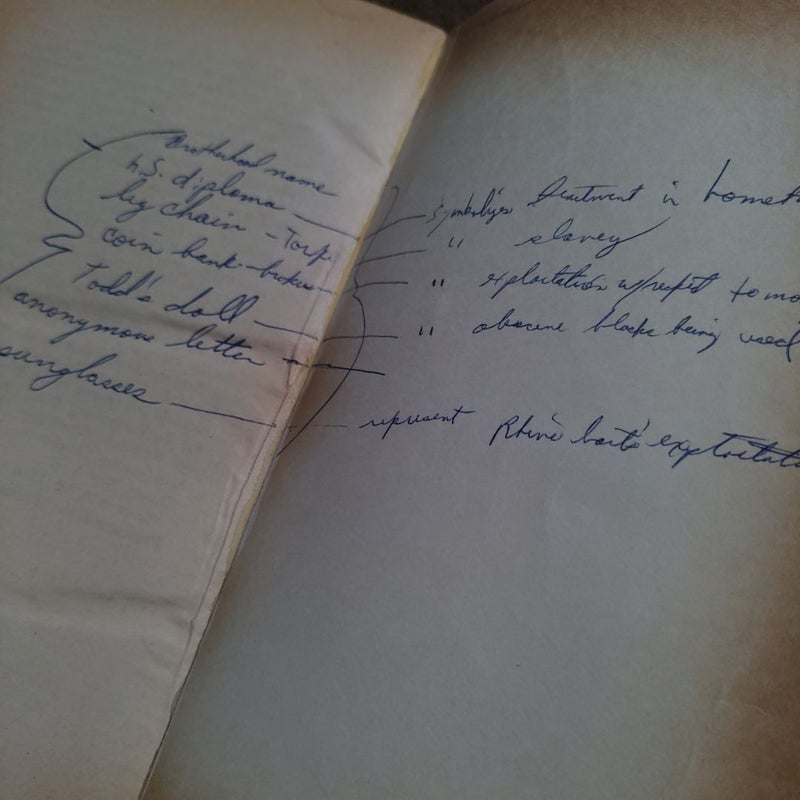 Brotherhood name
h.S. diploma
leg chain - Tarp
coin bank - broken
Todd's doll
anonymous letter
sunglasses
symbolizes treatment in homet
" slavey
" exploitation w/respect to mo
" obscene blacks being used
represent Rhine exploitat